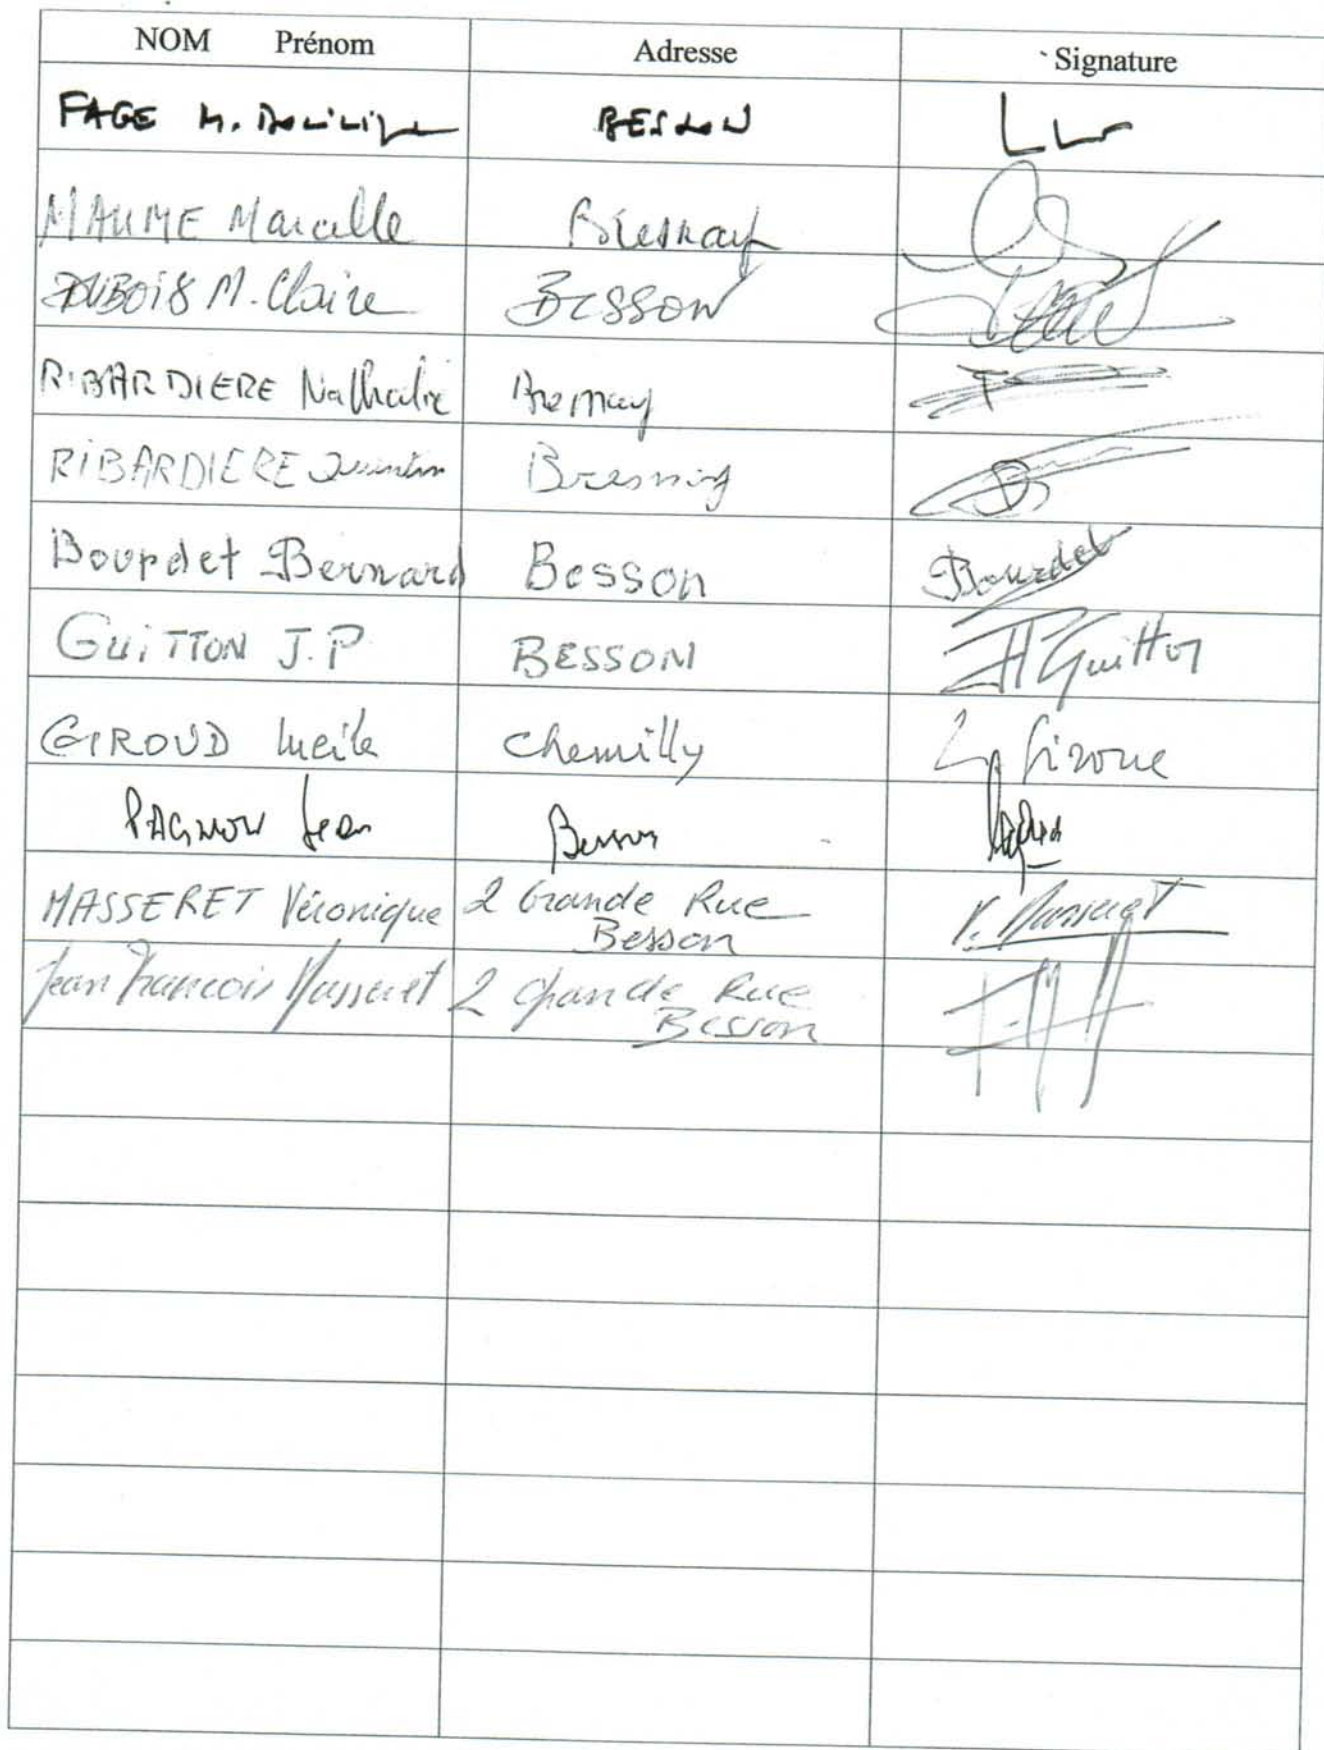 NOM Prénom Adresse Signature
FAGE M. BESSON
MAUME Marcelle Bresnay
DUBOIS M. Claire BESSON
RIBARDIERE Nathalie Bresnay
RIBARDIERE Quentin Bresnay
Bourdet Bernard Besson Bourdet
GUITTON J.P BESSON JP Guitton
GIROUD Lucile Chemilly
PAGNON Jean Besson
MASSERET Véronique 2 Grande Rue V. Masseret
Besson
Jean Francois Masseret 2 Grande Rue
Besson